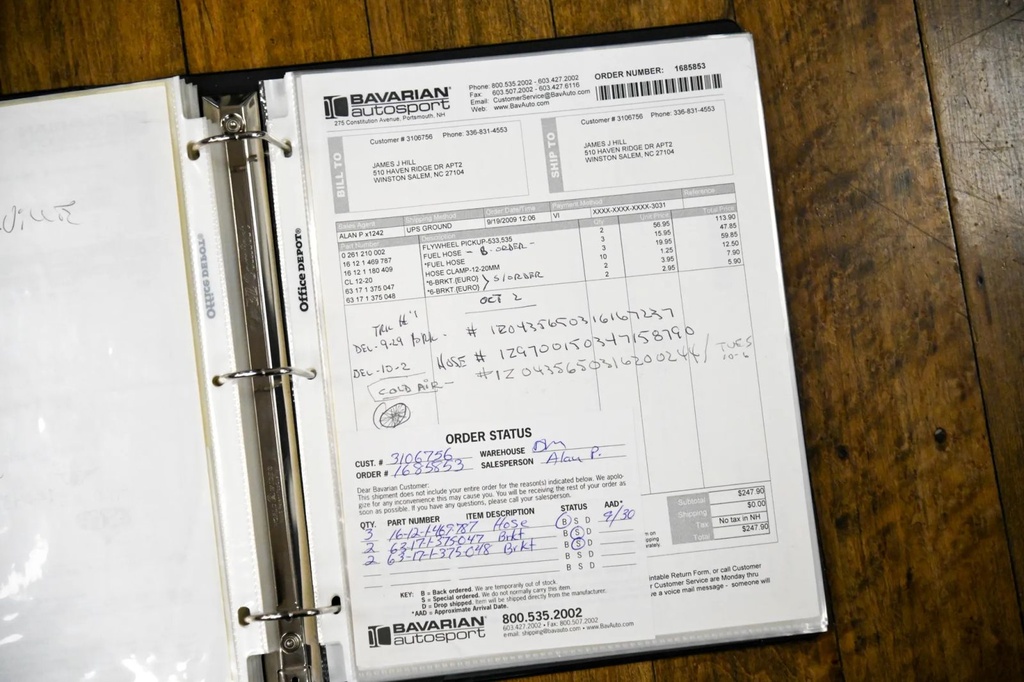 Office DEPOT®
BAVARIAN
autosport
275 Constitution Avenue, Portsmouth, NH
Phone: 800.535.2002 - 603.427.2002
Fax: 603.507.2002 - 603.427.6116
Email: CustomerService@BavAuto.com
Web: www.BavAuto.com
ORDER NUMBER: 1685853
BILL TO
Customer # 3106756 Phone: 336-831-4553
JAMES J HILL
510 HAVEN RIDGE DR APT2
WINSTON SALEM, NC 27104
SHIP TO
Customer # 3106756 Phone: 336-831-4553
JAMES J HILL
510 HAVEN RIDGE DR APT2
WINSTON SALEM, NC 27104
Sales Agent Shipping Method Order Date/Time Payment Method Reference
ALAN P x1242 UPS GROUND 9/19/2009 12:06 VI XXXX-XXXX-XXXX-3031
Part Number Description Unit Price Total Price
0 261 210 002 FLYWHEEL PICKUP-533,535 2 56.95 113.90
16 12 1 469 787 FUEL HOSE - B-ORDER- 3 15.95 47.85
16 12 1 180 409 *FUEL HOSE 3 19.95 59.85
CL 12-20 HOSE CLAMP-12-20MM 10 1.25 12.50
63 17 1 375 047 *6-BRKT.(EURO) 2 3.95 7.90
63 17 1 375 048 *6-BRKT.(EURO) 2 2.95 5.90
S/ORDER
OCT 2
TRK #'1
DEL-9-29 - # 1Z0435650316167237
DEL-10-2 HOSE # 1Z9700150347158790
COLD AIR - #1Z0435650316200244 / TUES
10-6
ORDER STATUS
CUST. # 3106756 WAREHOUSE
ORDER # 1685853 SALESPERSON Alan P.
Dear Bavarian Customer:
This shipment does not include your entire order for the reason(s) indicated below. We apolo-
gize for any inconvenience this may cause you. You will be receiving the rest of your order as
soon as possible. If you have any questions, please call your salesperson.
QTY. PART NUMBER ITEM DESCRIPTION STATUS AAD*
3 16-12-1-469787 Hose B S D 9/30
2 63-17-1-375-047 Brkt B S D
2 63-17-1-375-048 Brkt B S D
B S D
B S D
KEY: B = Back ordered. We are temporarily out of stock.
S = Special ordered. We do not normally carry this item.
D = Drop shipped. Item will be shipped directly from the manufacturer.
*AAD = Approximate Arrival Date.
BAVARIAN
autosport
800.535.2002
603.427.2002 • Fax: 800.507.2002
email: shipping@bavauto.com • www.BavAuto.com
Subtotal $247.90
Shipping $0.00
Tax No tax in NH
Total $247.90
intable Return Form, or call Customer
Customer Service are Monday thru
ve a voice mail message - someone will
Office DEPOT®